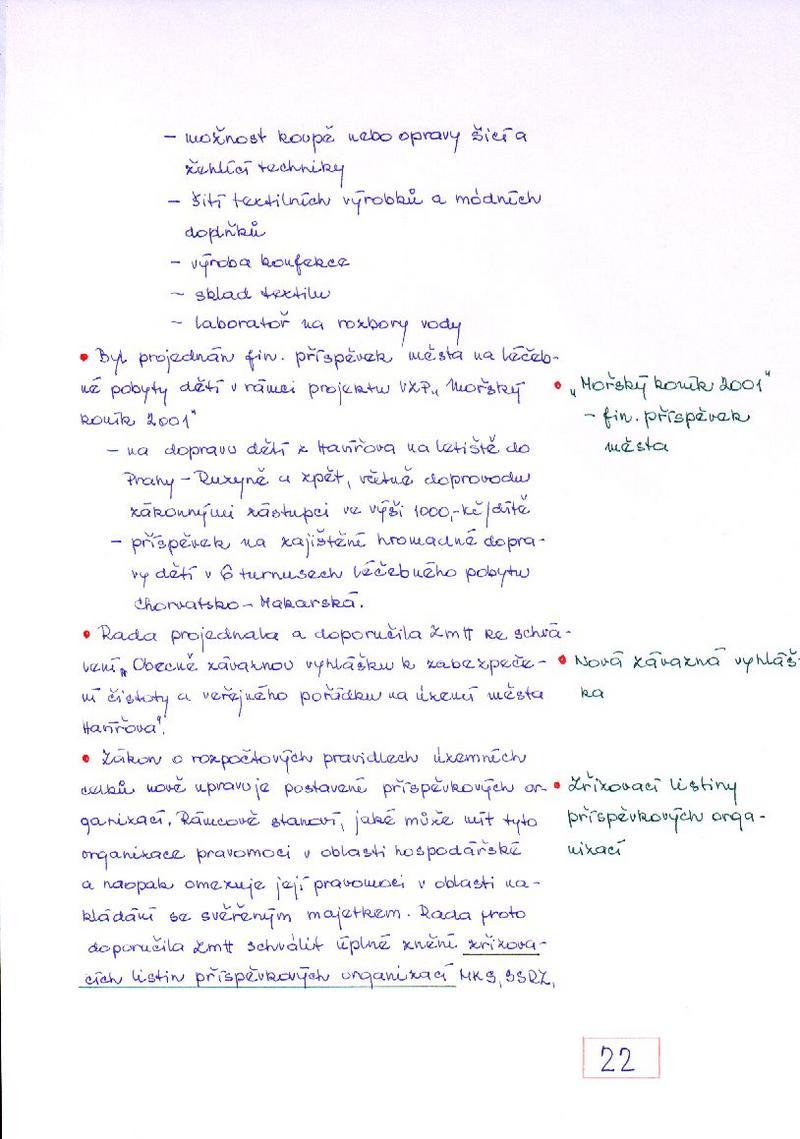 – možnost koupě nebo opravy šicí a
žehlící techniky
– šití textilních výrobků a módních
doplňků
– výroba konfekce
– sklad textilu
– laboratoř na rozbory vody
• Byl projednán fin. příspěvek města na léčeb-
né pobyty dětí v rámci projektu VZP „Mořský
koník 2001"
– na dopravu dětí z Havířova na letiště do
Prahy – Ruzyně a zpět, včetně doprovodu
zákonnými zástupci ve výši 1000,-Kč/dítě
– příspěvek na zajištění hromadné dopra-
vy dětí v 6 turnusech léčebného pobytu
Chorvatsko – Makarská.
• Rada projednala a doporučila ZmH ke schvá-
lení „Obecně závaznou vyhlášku k zabezpeče-
ní čistoty a veřejného pořádku na území města
Havířova".
• Zákon o rozpočtových pravidlech územních
celků nově upravuje postavení příspěvkových or-
ganizací. Rámcově stanoví, jaké může mít tyto
organizace pravomoci v oblasti hospodářské
a naopak omezuje její pravomoci v oblasti na-
kládání se svěřeným majetkem. Rada proto
doporučila ZmH schválit úplné znění zřizova-
cích listin příspěvkových organizací MKS, SSRZ,
• „Mořský koník 2001"
– fin. příspěvek
města
• Nová závazná vyhláš-
ka
• Zřizovací listiny
příspěvkových orga-
nizací
22